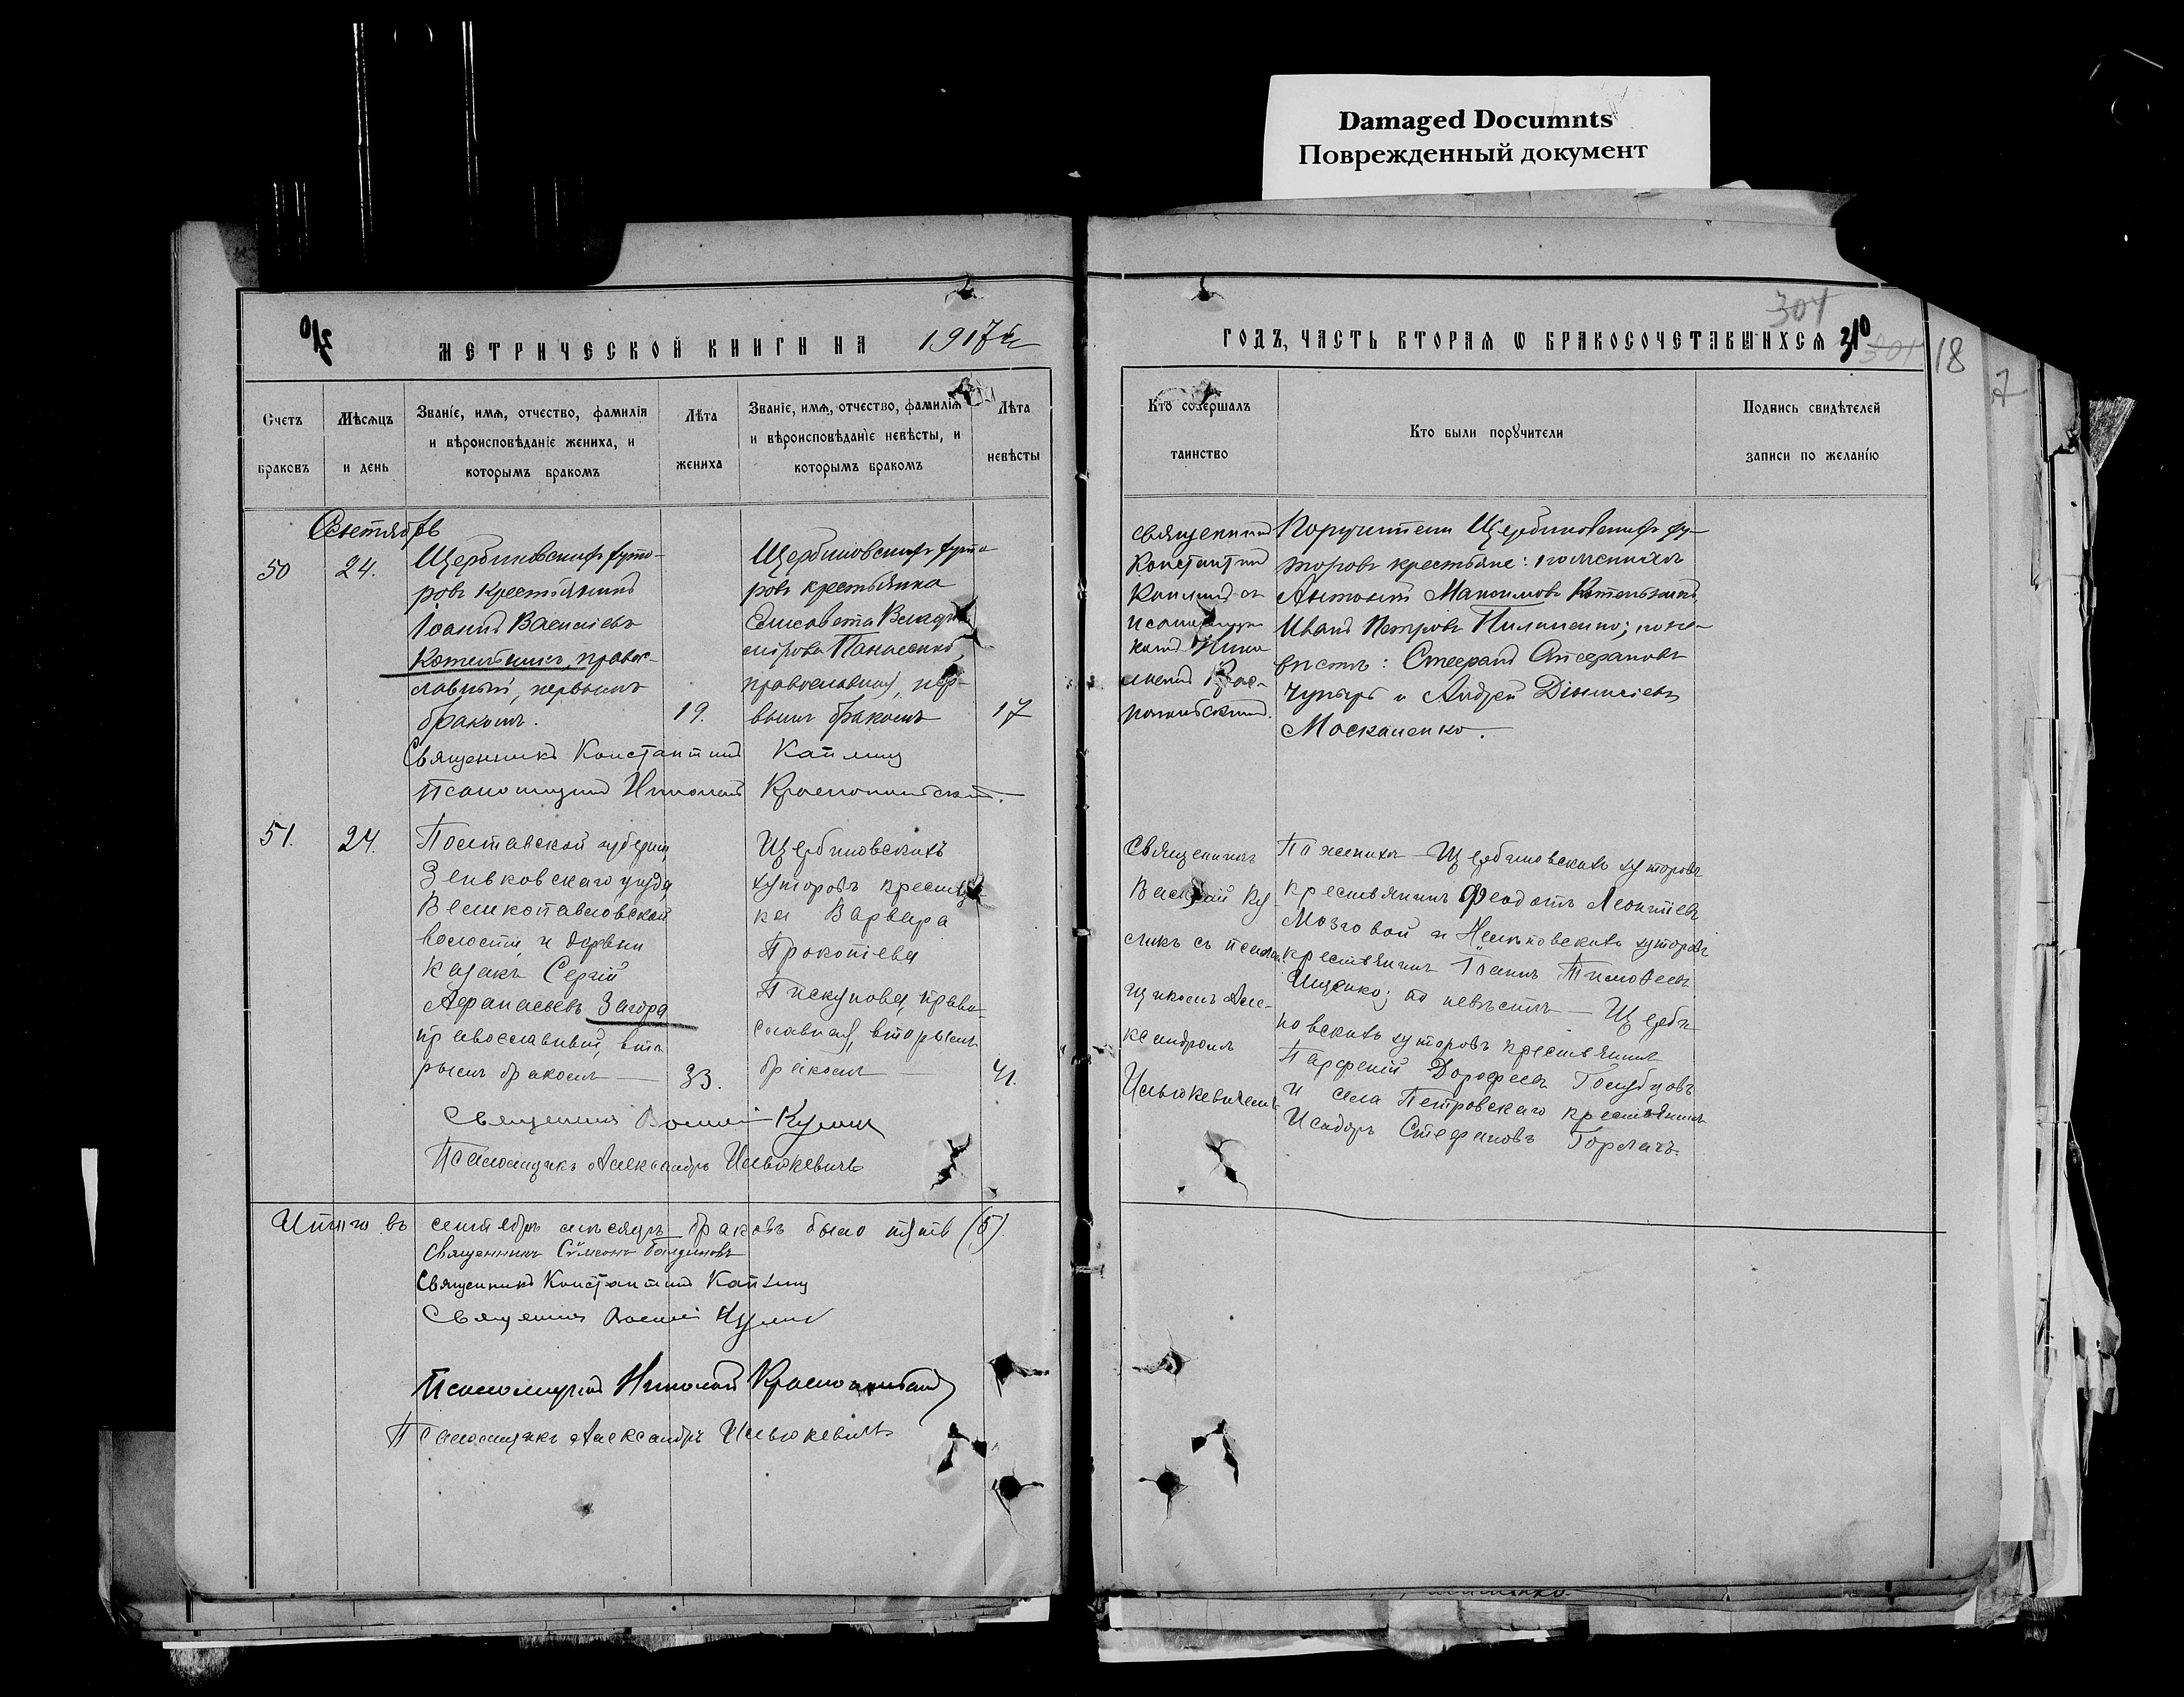 Damaged Documnts
Поврежденный документ
304
310
МЕТРИЧЕСКОЙ КНИГИ НА 1917й
ГОДЪ, ЧАСТЬ ВТОРАЯ Ѡ БРАКОСОЧЕТАВШИХСЯ
310 301 18
7
Счетъ браковъ
Мѣсяцъ и день
Званіе, имя, отчество, фамилія
и вѣроисповѣданіе жениха, и
которымъ бракомъ
Лѣта жениха
Званіе, имя, отчество, фамилія
и вѣроисповѣданіе невѣсты, и
которымъ бракомъ
Лѣта невѣсты
Кто совершалъ
таинство
Кто были поручители
Подпись свидѣтелей
записи по желанію
Сентябрь
50
24.
Щербиновскихъ хуто-
ровъ крестьянинъ
Іоаннъ Васильевъ
Котельникъ, право-
славный, первымъ
бракомъ.
19.
Щербиновскихъ хуто-
ровъ крестьянка
Елисавета Влади-
мірова Панасенко,
православная, пер-
вымъ бракомъ
17
Священникъ
Константинъ
Каплинъ съ
Поручители Щербиновскихъ ху-
торовъ крестьяне: по женихѣ
Антоній Максимовъ Котельникъ,
Иванъ Петровъ Пилипенко; по не-
вѣстѣ: Стефанъ
и Андрей Діонисіевъ
Москаленко.
Священникъ Константинъ Каплинъ
Псаломщикъ Николай Краснопольскій.
51.
24.
Полтавской губерніи,
Зеньковскаго уѣзда,
Великопавловской
волости и деревни
казакъ Сергій
Афанасьевъ Загора
православный, вто-
рымъ бракомъ
33.
Щербиновскихъ
хуторовъ крестьян-
ка Варвара
Прокопіева
Пискунова, право-
славная, вторымъ
бракомъ
41.
Священникъ
Василій Ку-
ликъ съ псалом-
щикомъ Але-
ксандромъ
Ильюкевичемъ
По женихѣ — Щербиновскихъ хуторовъ
крестьянинъ Феодотъ Леонтіевъ
Мозговой и Нелѣповскихъ хуторовъ
крестьянинъ Іоаннъ Тимоѳеевъ
Ищенко; по невѣстѣ — Щерби-
новскихъ хуторовъ крестьянинъ
Парфеній Дорофеевъ Голубцовъ
и села Петровскаго крестьянинъ
Исидоръ Стефановъ Горлачъ.
Священникъ Василій Куликъ
Псаломщикъ Александръ Ильюкевичъ
Итого въ сентябрѣ мѣсяцѣ браковъ было пять (5)
Священникъ Сѵмеонъ
Священникъ Константинъ Каплинъ
Священникъ Василій Куликъ
Псаломщикъ Николай Краснопольскій
Псаломщикъ Александръ Ильюкевичъ